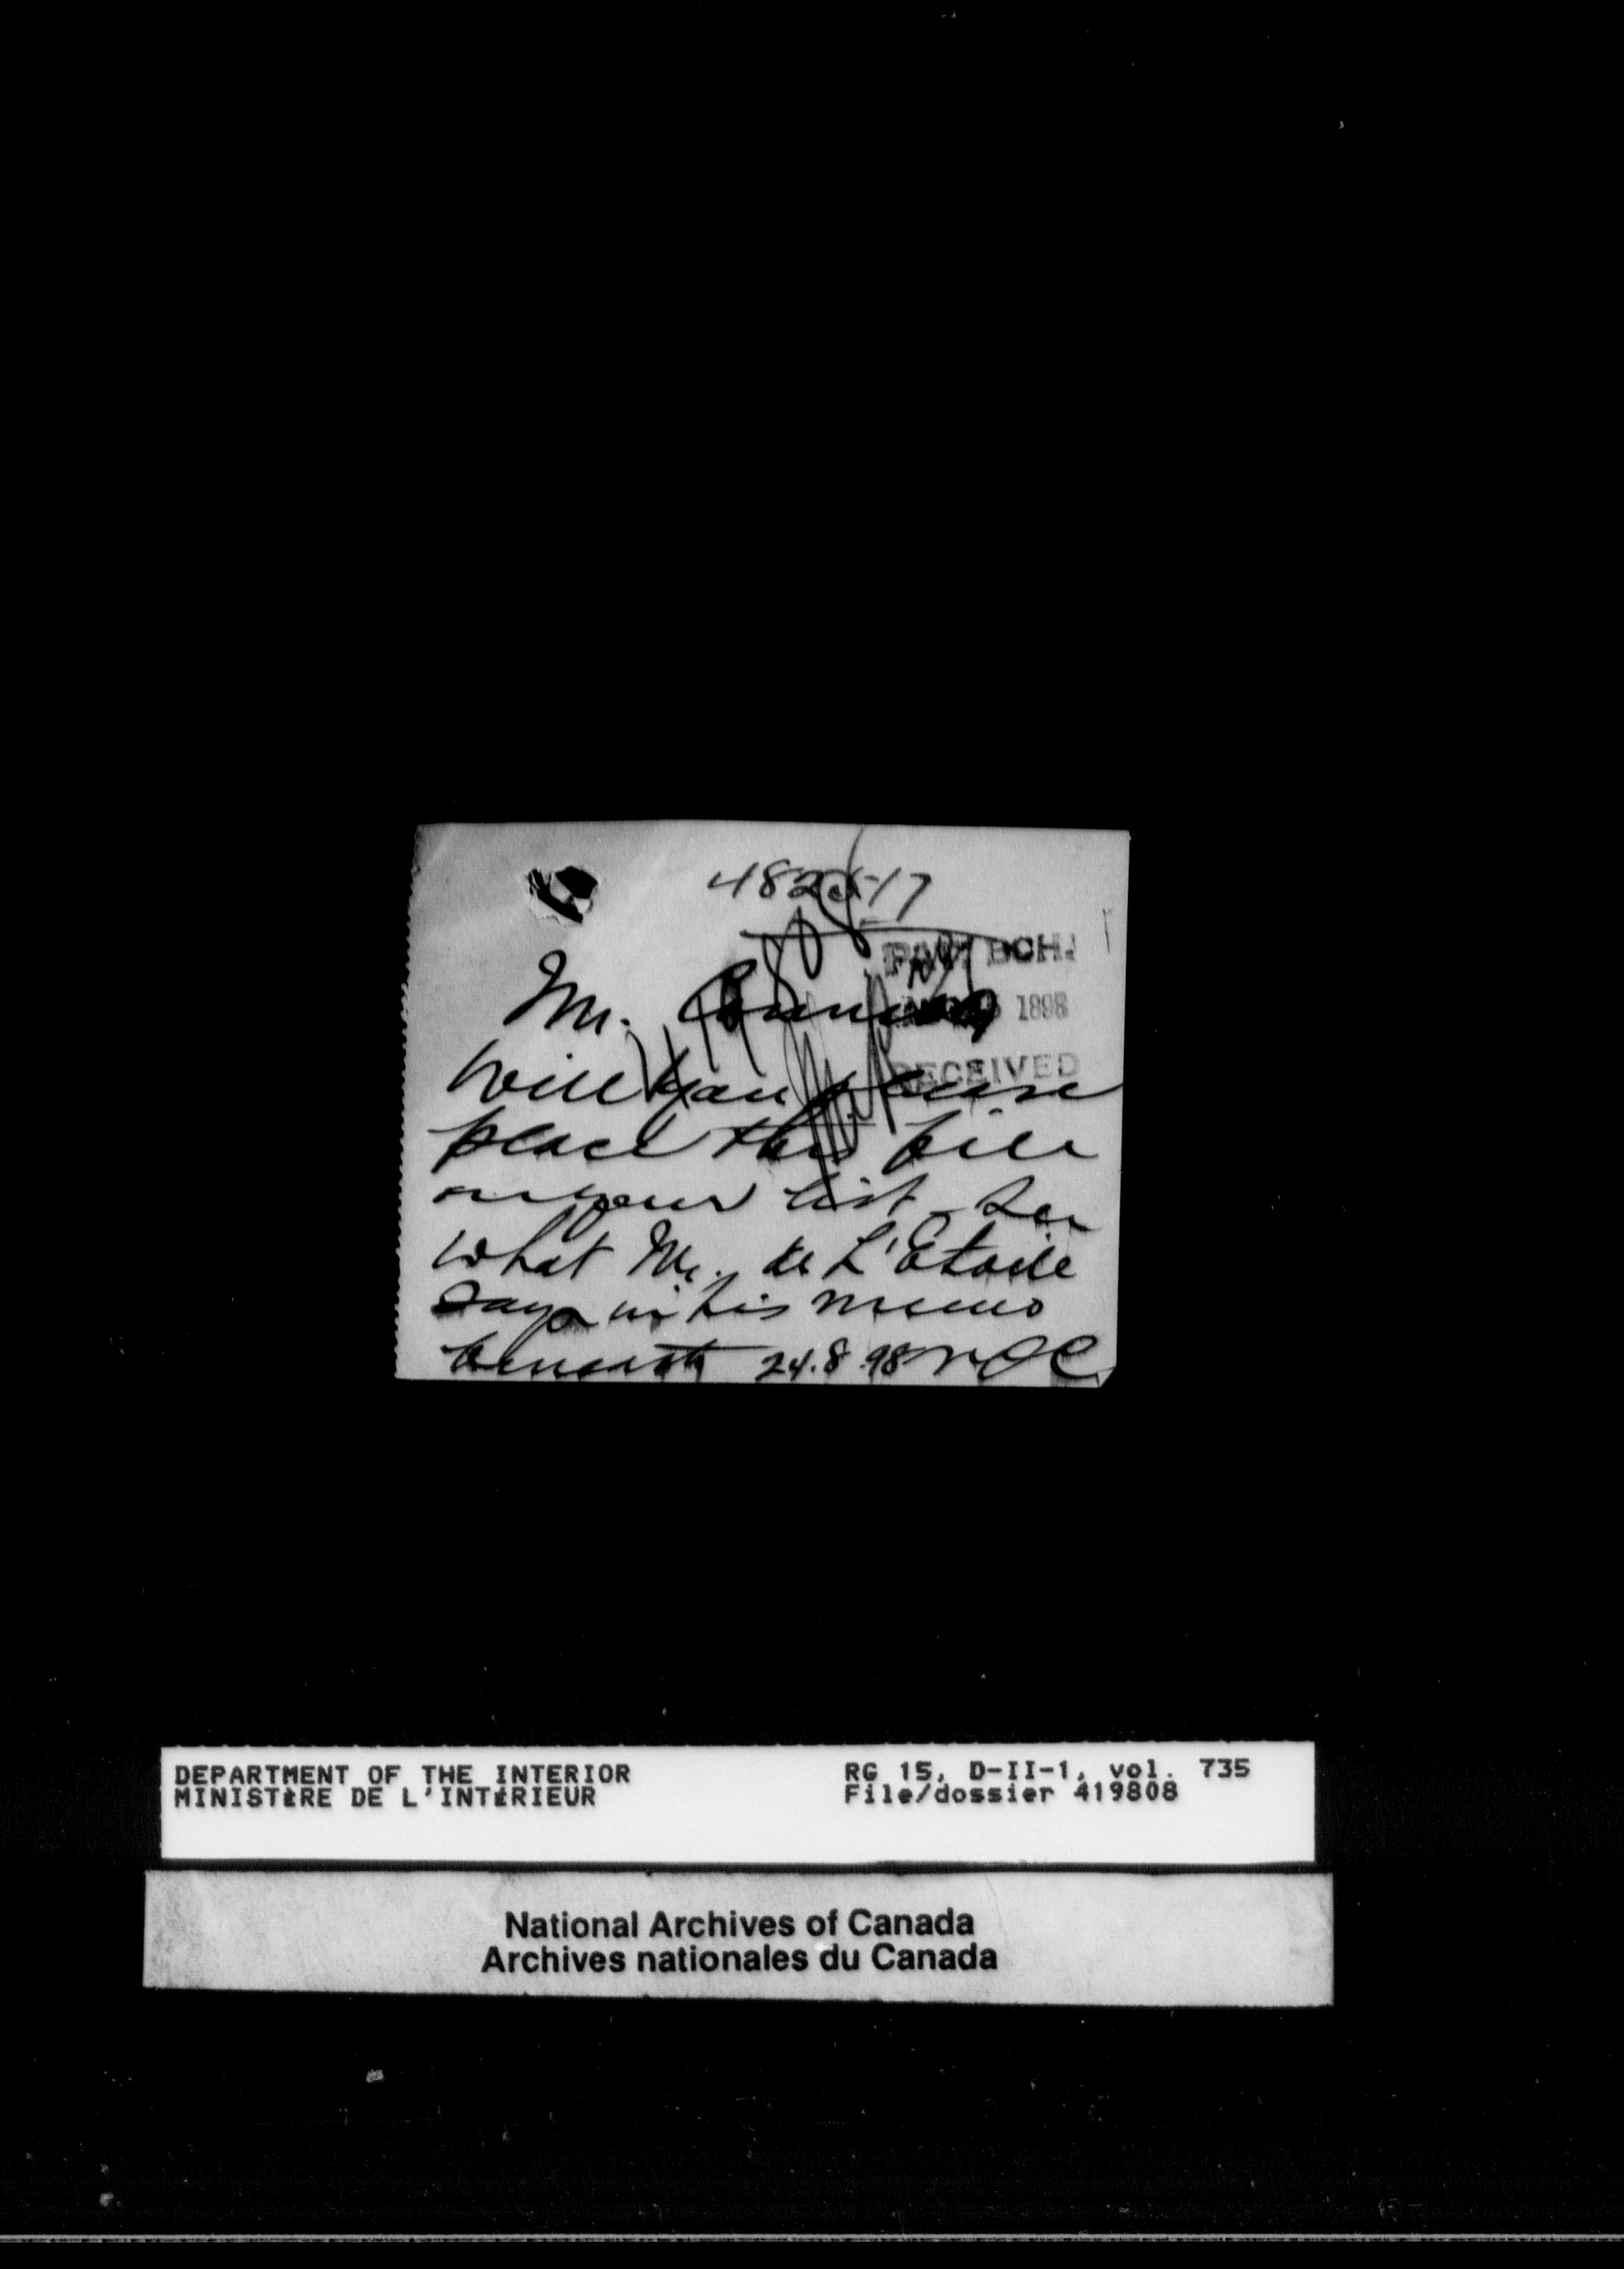 482517
PAT. BCH.
1898
RECEIVED
Mr.
Will you please
place this file
on your list. See
what Mr. de L'Etoile
says in his memo
beneath 24.8.98
DEPARTMENT OF THE INTERIOR
MINISTÈRE DE L'INTÉRIEUR
RG 15, D-II-1, vol. 735
File/dossier 419808
National Archives of Canada
Archives nationales du Canada